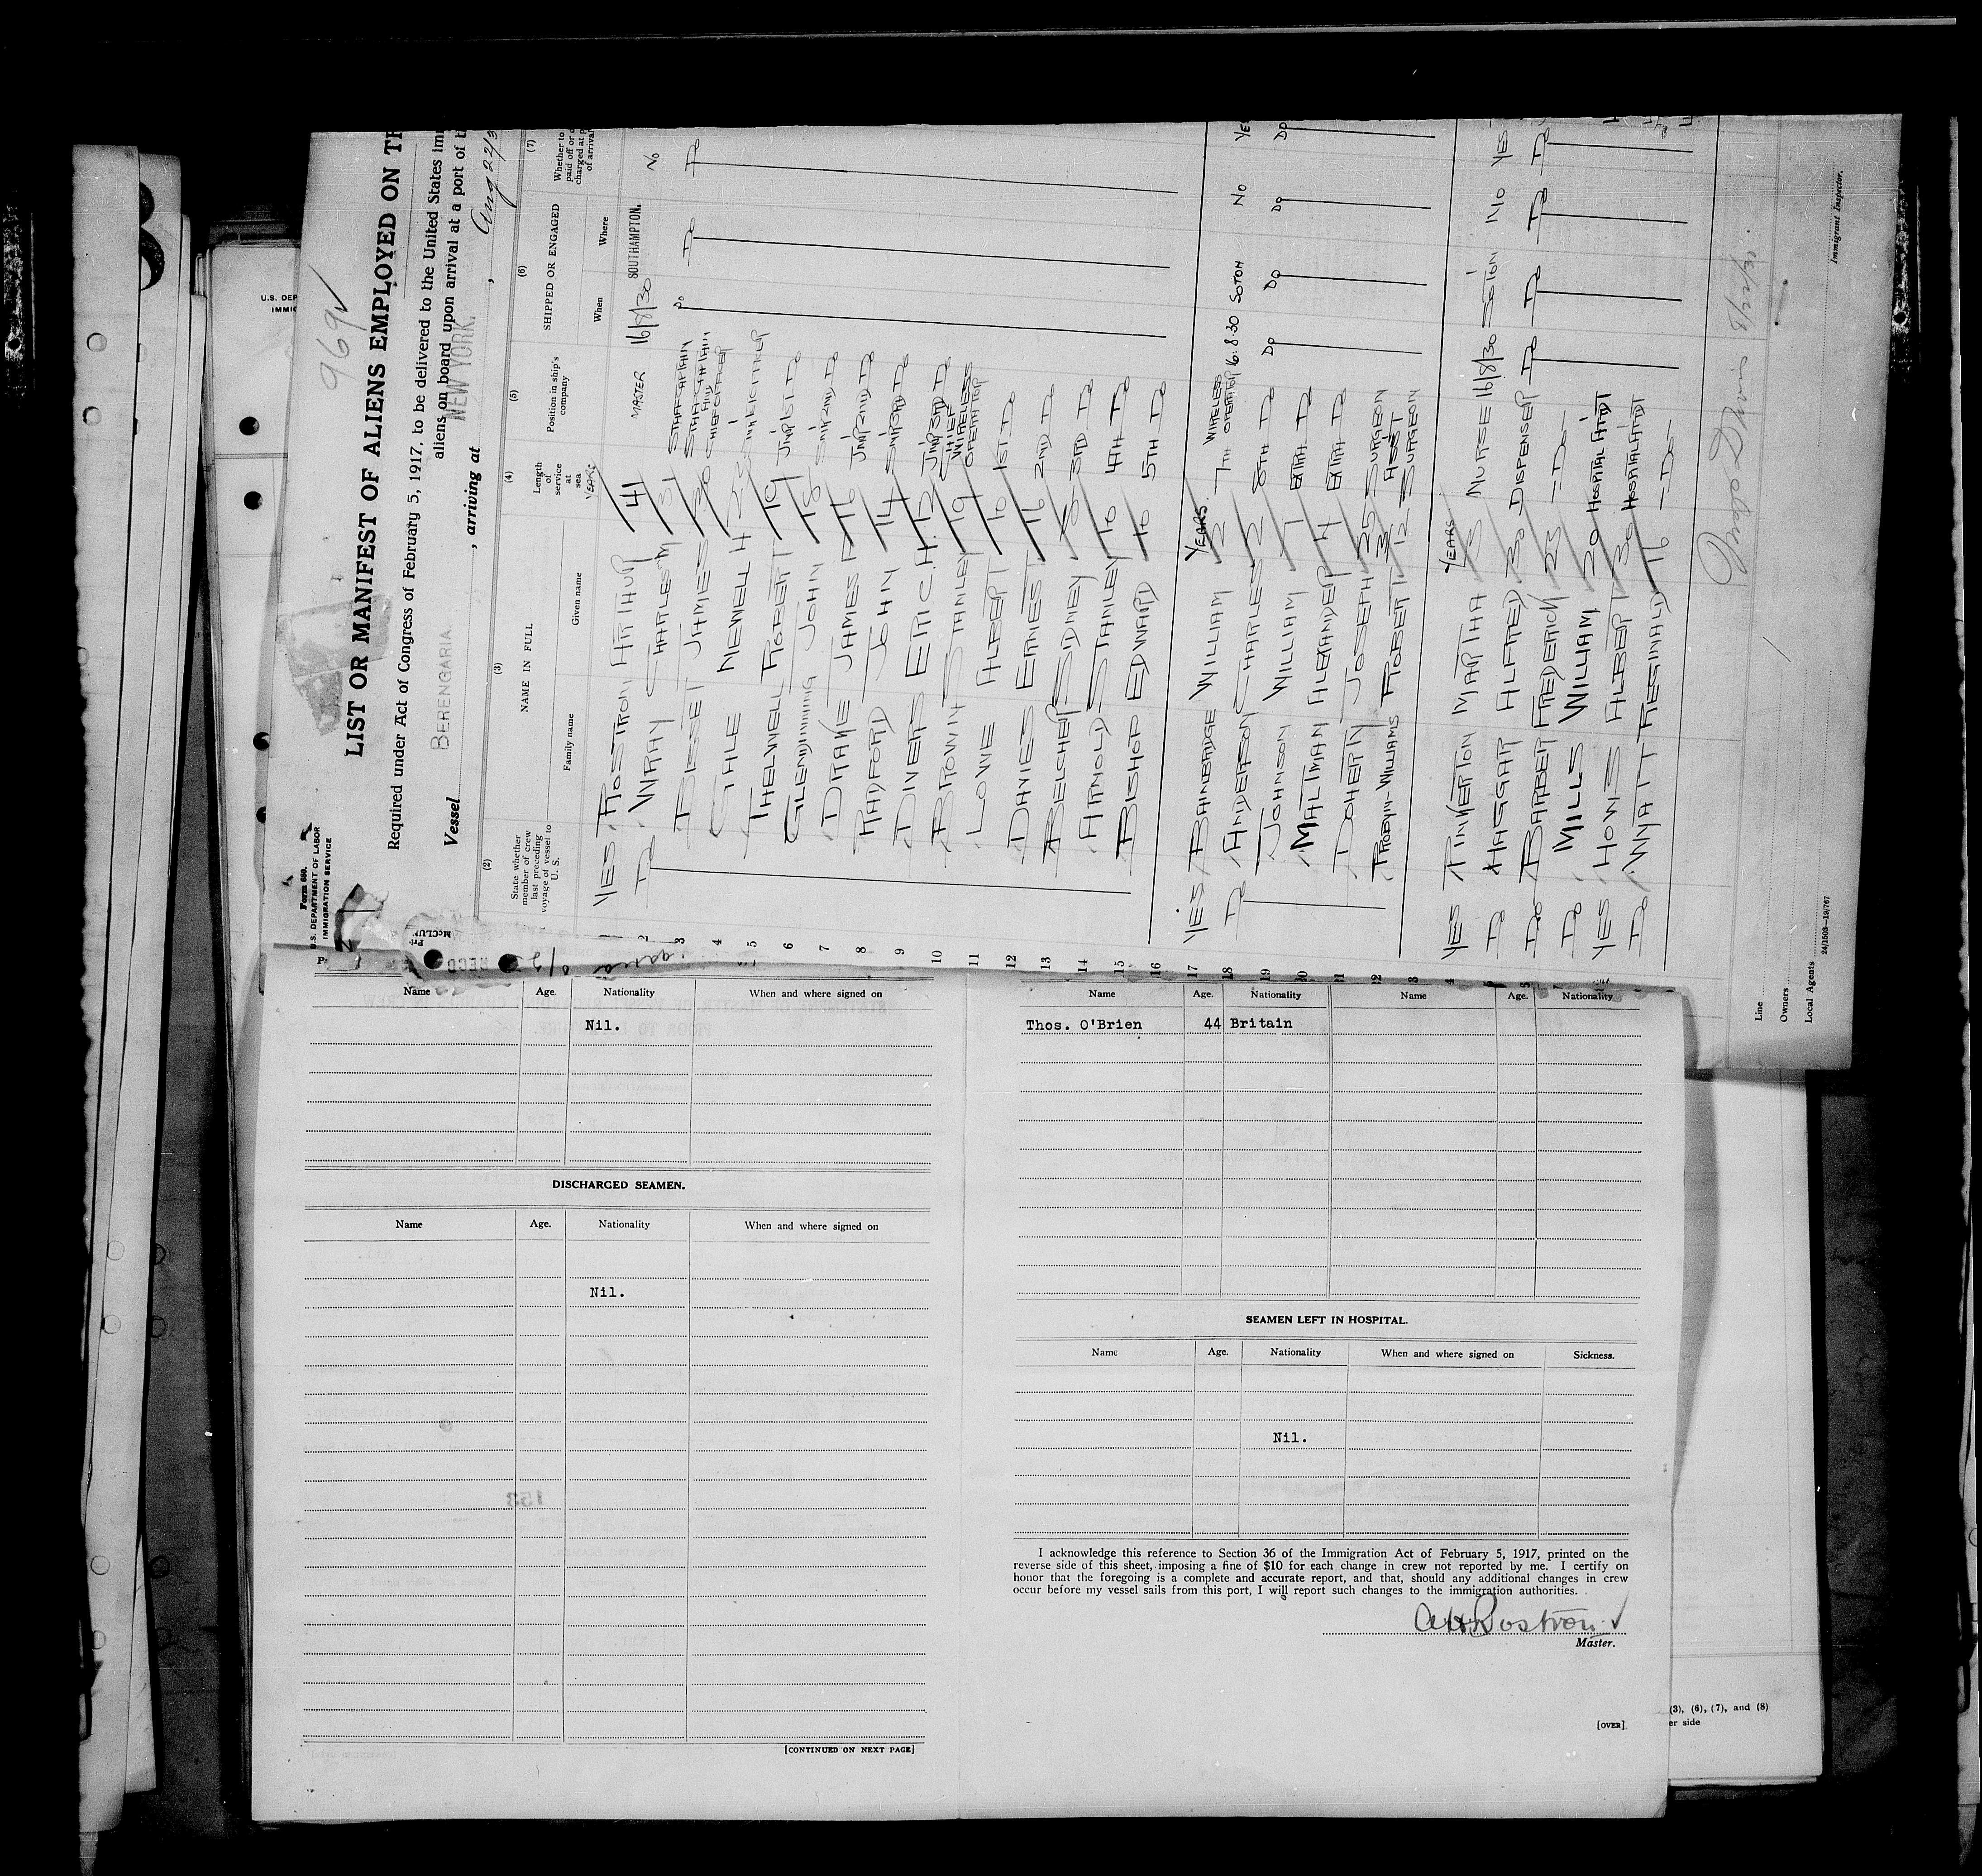 969
Form 680.
U.S. DEPARTMENT OF LABOR
IMMIGRATION SERVICE
LIST OR MANIFEST OF ALIENS EMPLOYED ON
Required under Act of Congress of February 5, 1917, to be delivered to the United States
aliens on board upon arrival at a port of
Vessel BERENGARIA , arriving at NEW YORK. , Aug 22/3
(2) (3) (4) (5) (6) (7)
State whether member of crew last preceding voyage of vessel to U. S.
NAME IN FULL
Family name Given name
Length of service at sea
Position in ship's company
SHIPPED OR ENGAGED
When Where
Whether to
paid off or
charged at
of arrival
YEARS
1 YES ROSTRON ARTHUR 41 MASTER 16/8/30 SOUTHAMPTON. No
2 Do WRAY CHARLES M 31 STAFF CAPTAIN Do Do Do
3 BISSET JAMES
4 GALE NEWELL H
5 THELWELL ROBERT 19 JNR 1ST Do
6 GLENDINNING JOHN 18 SNR 2ND Do
7 DRAKE JAMES 16 JNR 2ND Do
8 RADFORD JOHN 14 SNR 3RD Do
9 DIVERS ERIC C.H. 12 JNR 3RD Do
10 BROWN STANLEY 19 CHIEF WIRELESS OPERATOR
11 LOWE ALBERT 10 1ST Do
12 DAVIES ERNEST 16 2ND Do
13 BELCHER SIDNEY 3RD Do
14 ARNOLD STANLEY 10 4TH Do
15 BISHOP EDWARD 10 5TH Do
16
YEARS
17 YES BAINBRIDGE WILLIAM 2 7TH WIRELESS OPERATOR 16.8.30 SOTON No YES
18 Do ANDERSON CHARLES 2 8TH Do Do Do Do Do
19 JOHNSON WILLIAM 1 EXTRA Do
MALTMAN ALEXANDER 4 EXTRA Do
DOHERTY JOSEPH 25 SURGEON
PROBYN-WILLIAMS ROBERT 12 ASST SURGEON
YEARS
YES PINKERTON MARTHA NURSE 16/8/30 SOTON No YES
Do HAGGAR ALFRED 30 DISPENSER Do Do Do Do
Do BARBER FREDERICK 23 -Do-
Do MILLS WILLIAM 20 HOSPITAL ATTDT
YES HOWS ALBERT HOSPITAL ATTDT
Do WYATT REGINALD 16 -Do-
8/22/30
Line
Owners
Local Agents
24/1503-19/767
Immigrant Inspector.
U.S. DEP
Name Age. Nationality When and where signed on
Nil.
DISCHARGED SEAMEN.
Name Age. Nationality When and where signed on
Nil.
153
[CONTINUED ON NEXT PAGE]
Name Age. Nationality Name Age. Nationality
Thos. O'Brien 44 Britain
SEAMEN LEFT IN HOSPITAL.
Name Age. Nationality When and where signed on Sickness.
Nil.
I acknowledge this reference to Section 36 of the Immigration Act of February 5, 1917, printed on the
reverse side of this sheet, imposing a fine of $10 for each change in crew not reported by me. I certify on
honor that the foregoing is a complete and accurate report, and that, should any additional changes in crew
occur before my vessel sails from this port, I will report such changes to the immigration authorities.
A H Rostron
Master.
[OVER]
(3), (6), (7), and (8)
er side